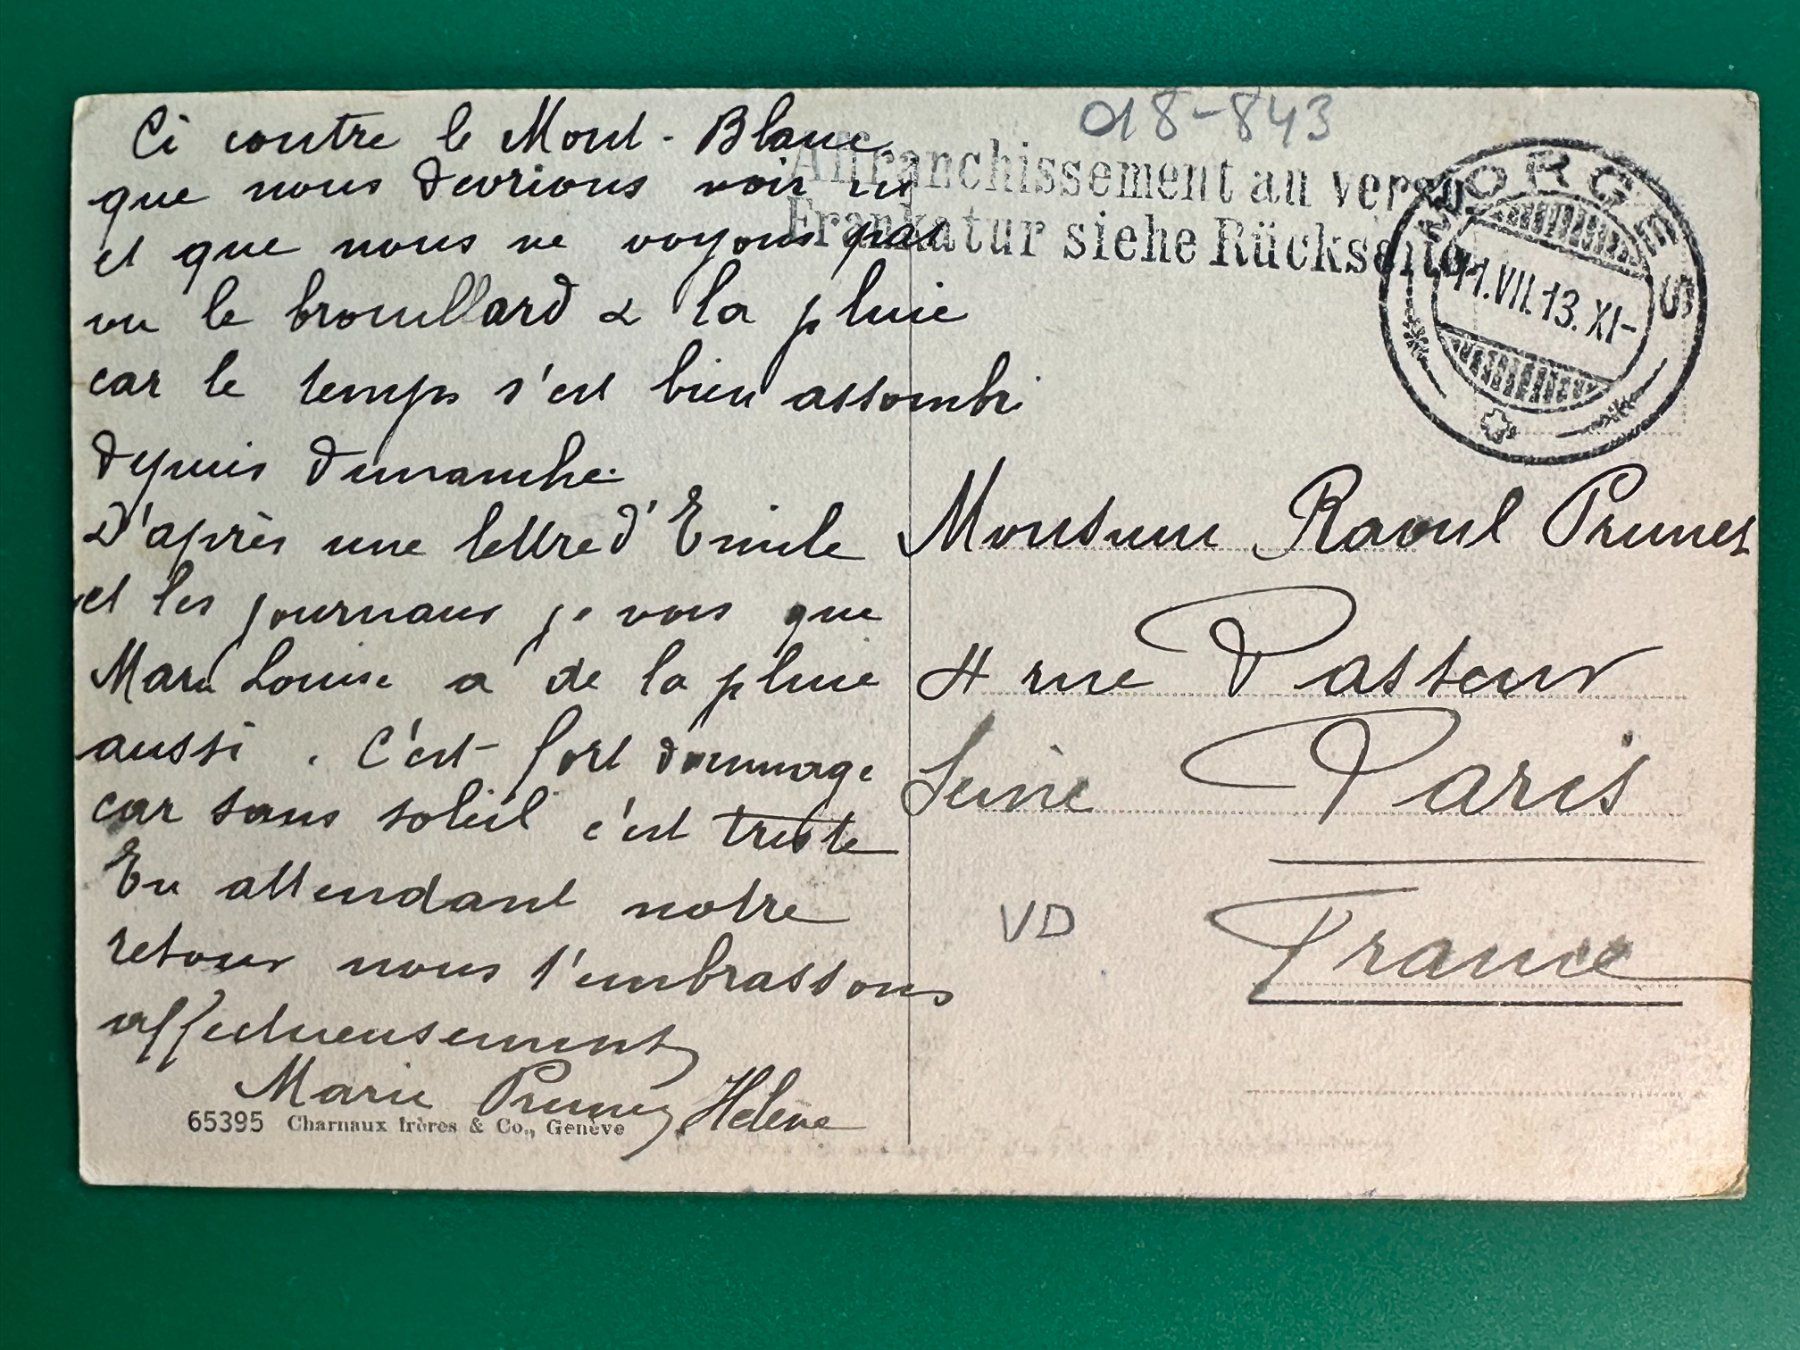 Ci contre le Mont-Blanc
que nous devrions voir ici
et que nous ne voyons pas
vu le brouillard & la pluie
car le temps s'est bien assombri
depuis dimanche.
D'après une lettre d'Emile
et les journaux je vois que
Marie Louise a de la pluie
aussi. C'est fort dommage
car sans soleil c'est triste
En attendant notre
retour nous t'embrassons
affectueusement
Marie Prunet Helène
65395 Charnaux frères & Co., Genève
018-843
Affranchissement au verso
Frankatur siehe Rückseite
MORGES
11.VII.13.XI-
Monsieur Raoul Prunet
4 rue Pasteur
Seine Paris
VD
France